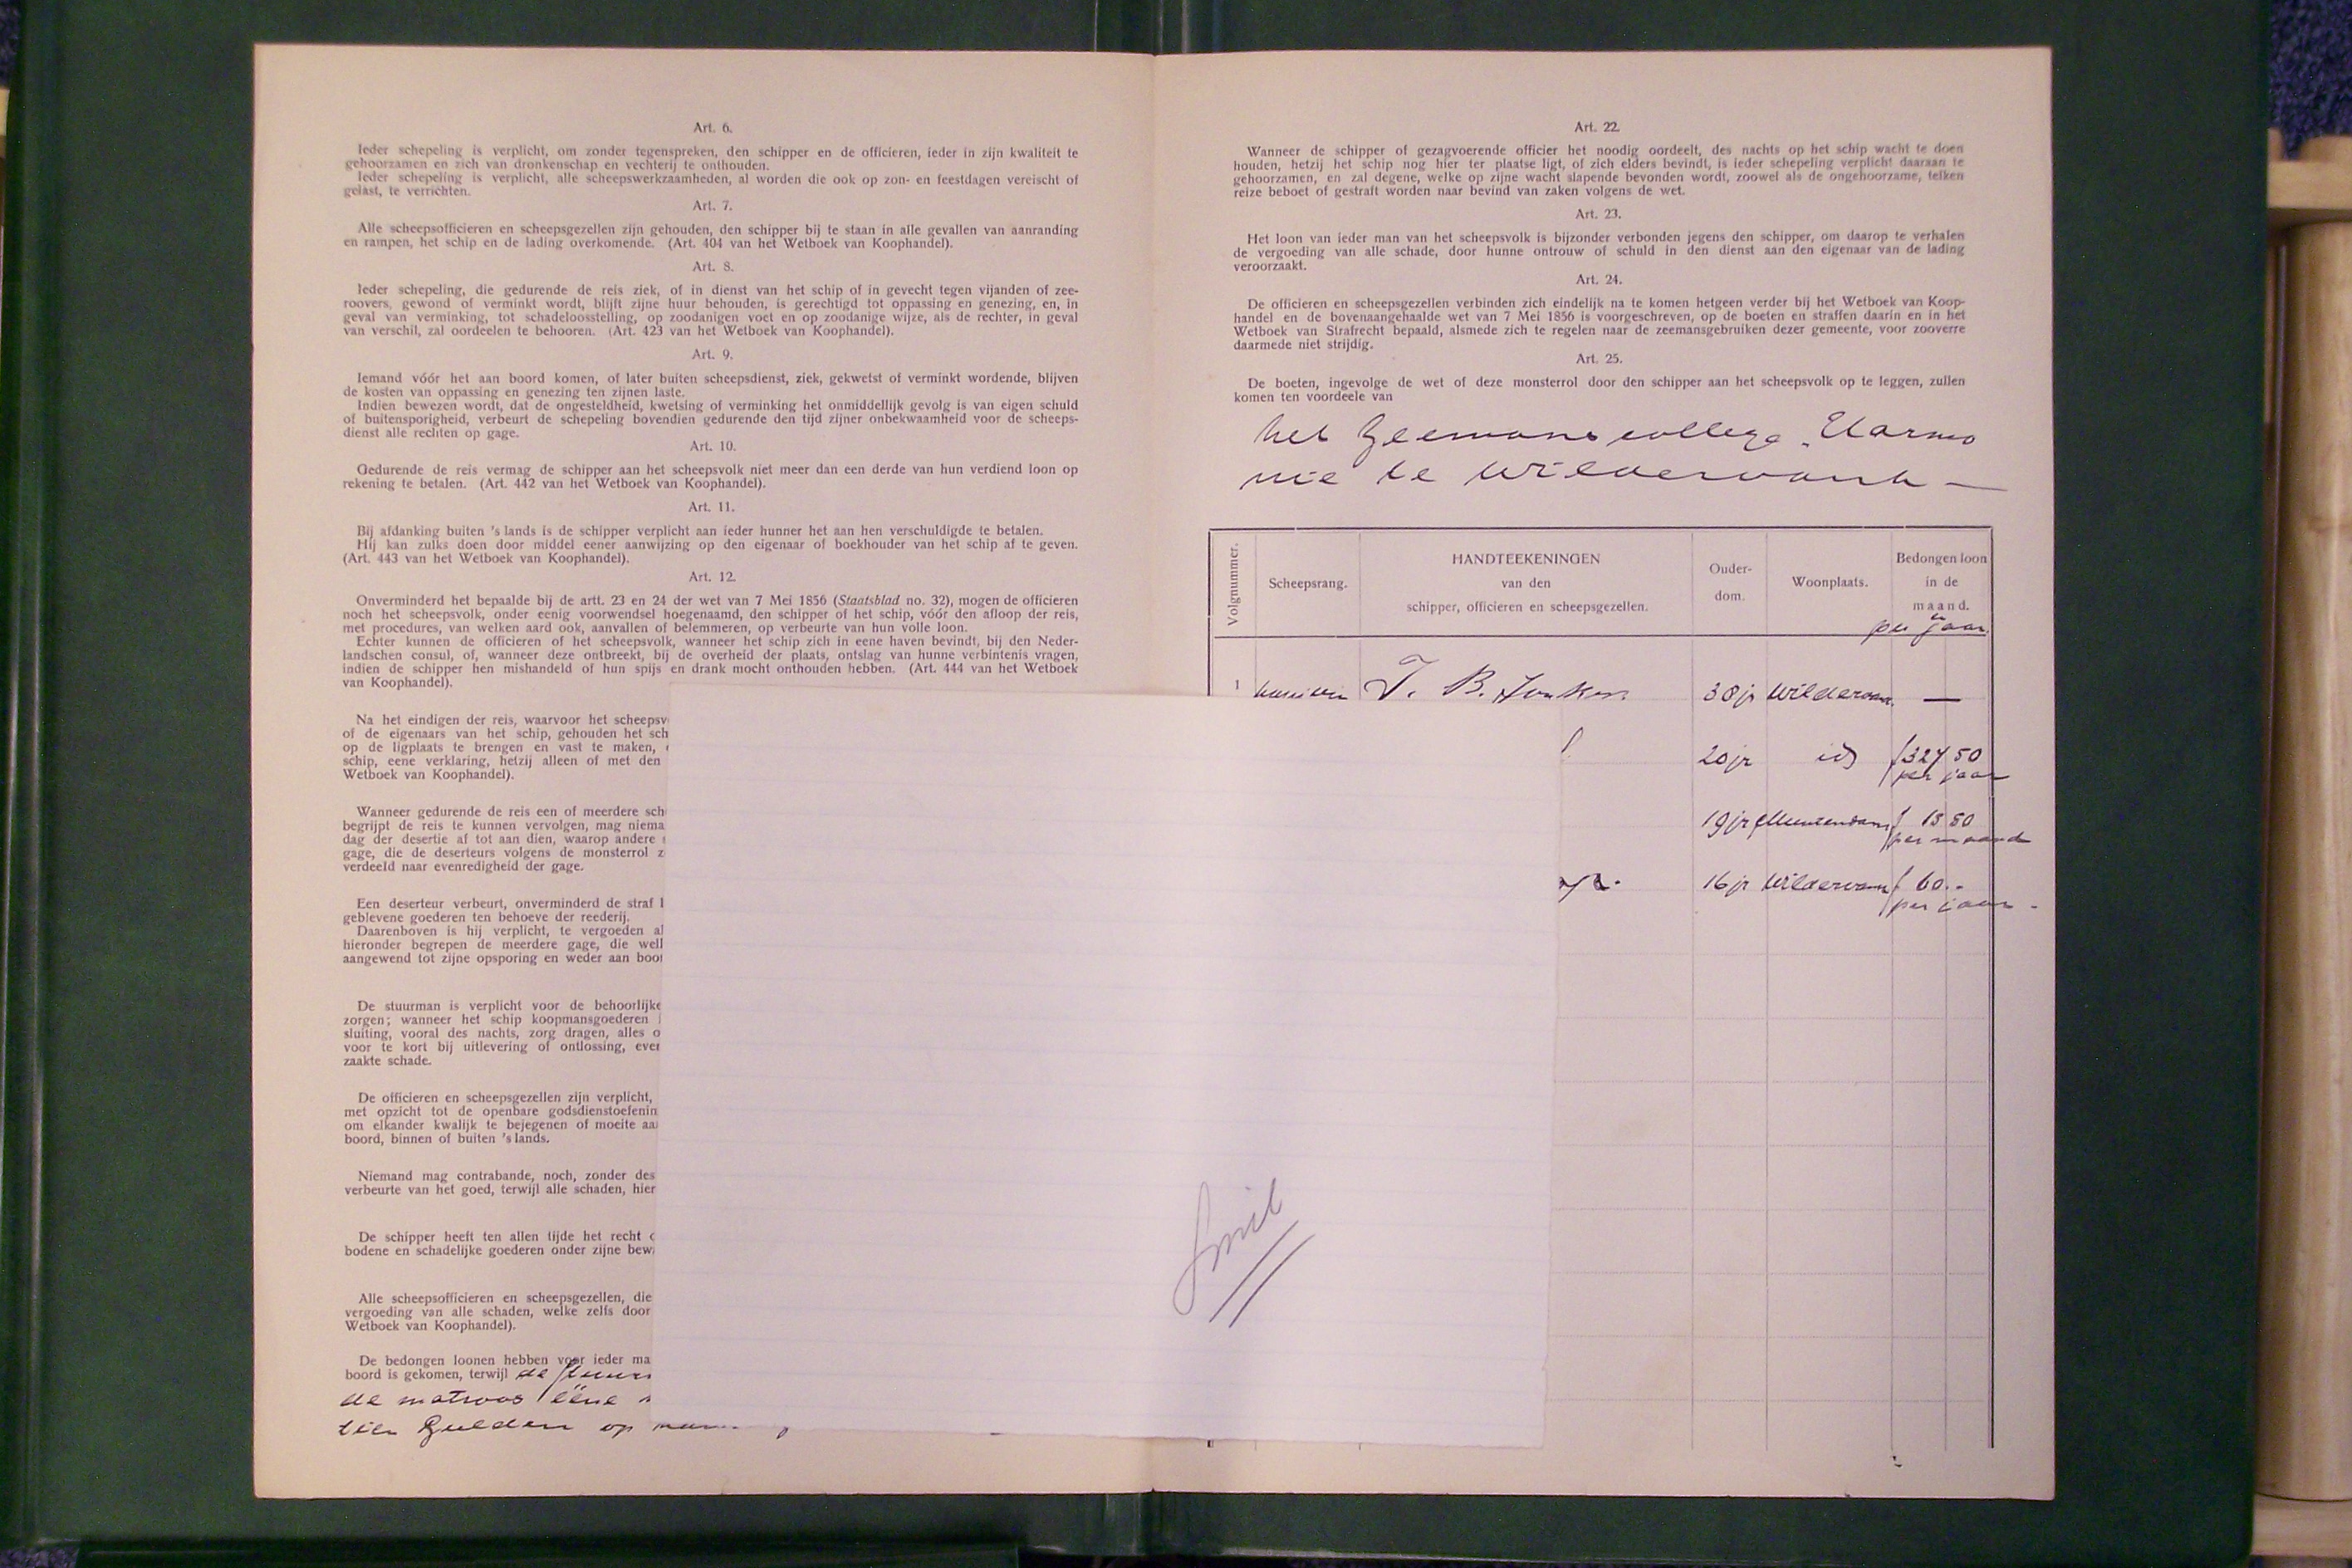 Art. 6.
Ieder schepeling is verplicht, om zonder tegenspreken, den schipper en de officieren, ieder in zijn kwaliteit te
gehoorzamen en zich van dronkenschap en vechterij te onthouden.
Ieder schepeling is verplicht, alle scheepswerkzaamheden, al worden die ook op zon- en feestdagen vereischt of
gelast, te verrichten.
Art. 7.
Alle scheepsofficieren en scheepsgezellen zijn gehouden, den schipper bij te staan in alle gevallen van aanranding
en rampen, het schip en de lading overkomende. (Art. 404 van het Wetboek van Koophandel).
Art. 8.
Ieder schepeling, die gedurende de reis ziek, of in dienst van het schip of in gevecht tegen vijanden of zee-
roovers, gewond of verminkt wordt, blijft zijne huur behouden, is gerechtigd tot oppassing en genezing, en, in
geval van verminking, tot schadeloosstelling, op zoodanigen voet en op zoodanige wijze, als de rechter, in geval
van verschil, zal oordeelen te behooren. (Art. 423 van het Wetboek van Koophandel).
Art. 9.
Iemand vóór het aan boord komen, of later buiten scheepsdienst, ziek, gekwetst of verminkt wordende, blijven
de kosten van oppassing en genezing ten zijnen laste.
Indien bewezen wordt, dat de ongesteldheid, kwetsing of verminking het onmiddellijk gevolg is van eigen schuld
of buitensporigheid, verbeurt de schepeling bovendien gedurende den tijd zijner onbekwaamheid voor de scheeps-
dienst alle rechten op gage.
Art. 10.
Gedurende de reis vermag de schipper aan het scheepsvolk niet meer dan een derde van hun verdiend loon op
rekening te betalen. (Art. 442 van het Wetboek van Koophandel).
Art. 11.
Bij afdanking buiten 's lands is de schipper verplicht aan ieder hunner het aan hen verschuldigde te betalen.
Hij kan zulks doen door middel eener aanwijzing op den eigenaar of boekhouder van het schip af te geven.
(Art. 443 van het Wetboek van Koophandel).
Art. 12.
Onverminderd het bepaalde bij de artt. 23 en 24 der wet van 7 Mei 1856 (Staatsblad no. 32), mogen de officieren
noch het scheepsvolk, onder eenig voorwendsel hoegenaamd, den schipper of het schip, vóór den afloop der reis,
met procedures, van welken aard ook, aanvallen of belemmeren, op verbeurte van hun volle loon.
Echter kunnen de officieren of het scheepsvolk, wanneer het schip zich in eene haven bevindt, bij den Neder-
landschen consul, of, wanneer deze ontbreekt, bij de overheid der plaats, ontslag van hunne verbintenis vragen,
indien de schipper hen mishandeld of hun spijs en drank mocht onthouden hebben. (Art. 444 van het Wetboek
van Koophandel).
Na het eindigen der reis, waarvoor het scheepsv
of de eigenaars van het schip, gehouden het sch
op de ligplaats te brengen en vast te maken,
schip, eene verklaring, hetzij alleen of met den
Wetboek van Koophandel).
Wanneer gedurende de reis een of meerdere sch
begrijpt de reis te kunnen vervolgen, mag niema
dag der desertie af tot aan dien, waarop andere
gage, die de deserteurs volgens de monsterrol z
verdeeld naar evenredigheid der gage.
Een deserteur verbeurt, onverminderd de straf
geblevene goederen ten behoeve der reederij.
Daarenboven is hij verplicht, te vergoeden al
hieronder begrepen de meerdere gage, die well
aangewend tot zijne opsporing en weder aan boo
De stuurman is verplicht voor de behoorlijke
zorgen; wanneer het schip koopmansgoederen
sluiting, vooral des nachts, zorg dragen, alles o
voor te kort bij uitlevering of ontlossing, ever
zaakte schade.
De officieren en scheepsgezellen zijn verplicht,
met opzicht tot de openbare godsdienstoefenin
om elkander kwalijk te bejegenen of moeite aa
boord, binnen of buiten 's lands.
Niemand mag contrabande, noch, zonder des
verbeurte van het goed, terwijl alle schaden, hier
De schipper heeft ten allen tijde het recht
bodene en schadelijke goederen onder zijne bew
Alle scheepsofficieren en scheepsgezellen, die
vergoeding van alle schaden, welke zelfs door
Wetboek van Koophandel).
De bedongen loonen hebben voor ieder ma
boord is gekomen, terwijl de
de matroos ééne
tien Gulden op
Smit
Art. 22.
Wanneer de schipper of gezagvoerende officier het noodig oordeelt, des nachts op het schip wacht te doen
houden, hetzij het schip nog hier ter plaatse ligt, of zich elders bevindt, is ieder schepeling verplicht daaraan te
gehoorzamen, en zal degene, welke op zijne wacht slapende bevonden wordt, zoowel als de ongehoorzame, telken
reize beboet of gestraft worden naar bevind van zaken volgens de wet.
Art. 23.
Het loon van ieder man van het scheepsvolk is bijzonder verbonden jegens den schipper, om daarop te verhalen
de vergoeding van alle schade, door hunne ontrouw of schuld in den dienst aan den eigenaar van de lading
veroorzaakt.
Art. 24.
De officieren en scheepsgezellen verbinden zich eindelijk na te komen hetgeen verder bij het Wetboek van Koop-
handel en de bovenaangehaalde wet van 7 Mei 1856 is voorgeschreven, op de boeten en straffen daarin en in het
Wetboek van Strafrecht bepaald, alsmede zich te regelen naar de zeemansgebruiken dezer gemeente, voor zooverre
daarmede niet strijdig.
Art. 25.
De boeten, ingevolge de wet of deze monsterrol door den schipper aan het scheepsvolk op te leggen, zullen
komen ten voordeele van
het Zeemanscollege „Harmo
nie te Wildervank —
Volgnummer.
Scheepsrang.
HANDTEEKENINGEN
van den
schipper, officieren en scheepsgezellen.
Ouder-
dom.
Woonplaats.
Bedongen loon
in de
maand.
per jaar
1 J. B. Jonker 38 jr Wildervank —
20 jr id f 327 50
per jaar
19 jr Muntendam f 13 50
per maand
16 jr Wildervank f 60.-
per jaar -